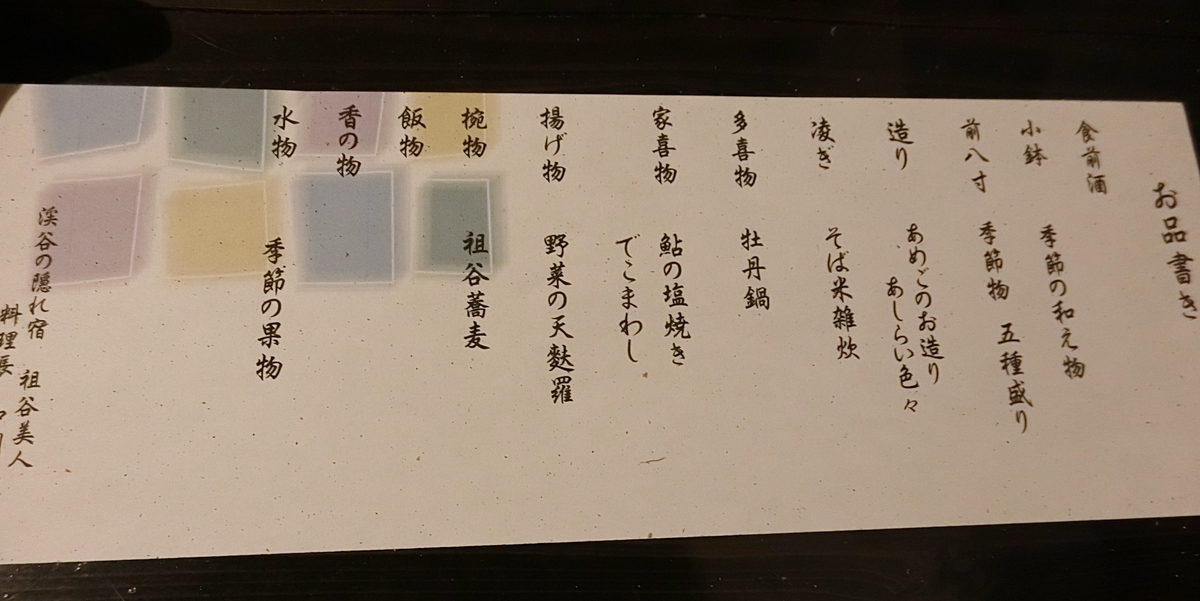 お品書き
食前酒
小鉢 季節の和え物
前八寸 季節物 五種盛り
造り あめごのお造り
あしらい色々
凌ぎ そば米雑炊
多喜物 牡丹鍋
家喜物 鮎の塩焼き
でこまわし
揚げ物 野菜の天麩羅
椀物 祖谷蕎麦
飯物
香の物
水物 季節の果物
渓谷の隠れ宿 祖谷美人
料理長